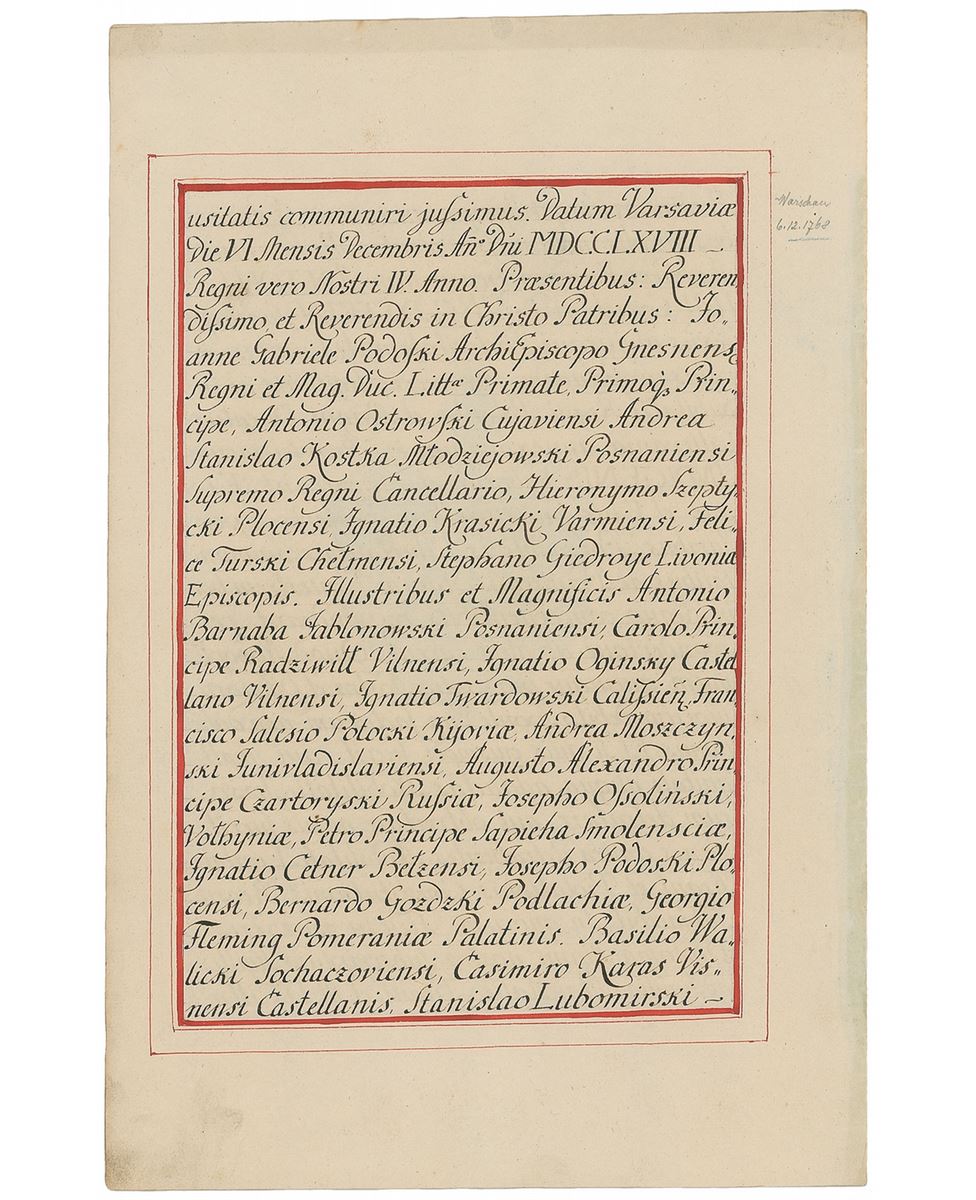 usitatis communiri juſsimus. Datum Varsaviæ
die VI Mensis Decembris Añ° Dńi MDCCLXVIII –
Regni vero Nostri IV. Anno. Præsentibus: Reveren„
diſsimo, et Reverendis in Christo Patribus: Jo„
anne Gabriele Podoſki ArchiEpiscopo Gnesnens,
Regni et Mag. Duc. Littæ Primate, Primoq̀, Prin„
cipe, Antonio Ostrowſki Cujaviensi Andrea
Stanislao Kostka Młodziejowski Posnaniensi
Supremo Regni Cancellario, Hieronymo Szepty„
cki Plocensi, Ignatio Krasicki Varmiensi, Feli„
ce Turski Chełmensi, Stephano Giedroye Livoniæ
Episcopis. Illustribus et Magnificis Antonio
Barnaba Jabłonowski Posnaniensi, Carolo Prin„
cipe Radziwiłł Vilnensi, Ignatio Oginsky Castel
lano Vilnensi, Ignatio Twardowski Caliſsień, Fran„
cisco Salesio Potocki Kijoviæ, Andrea Moszczyn„
ski Junivladislaviensi, Augusto Alexandro Prin„
cipe Czartoryski Ruſsiæ, Josepho Oſsoliński,
Vołhyniæ, Petro Principe Sapieha Smolensciæ,
Ignatio Cetner Bełzensi, Josepho Podoski Plo„
censi, Bernardo Gozdzki Podlachiæ, Georgio
Fleming Pomeraniæ Palatinis. Basilio Wa„
licki Sochaczoviensi, Casimiro Karas Vis„
nensi Castellanis, Stanislao Lubomirski –
Warschau
6.12.1768